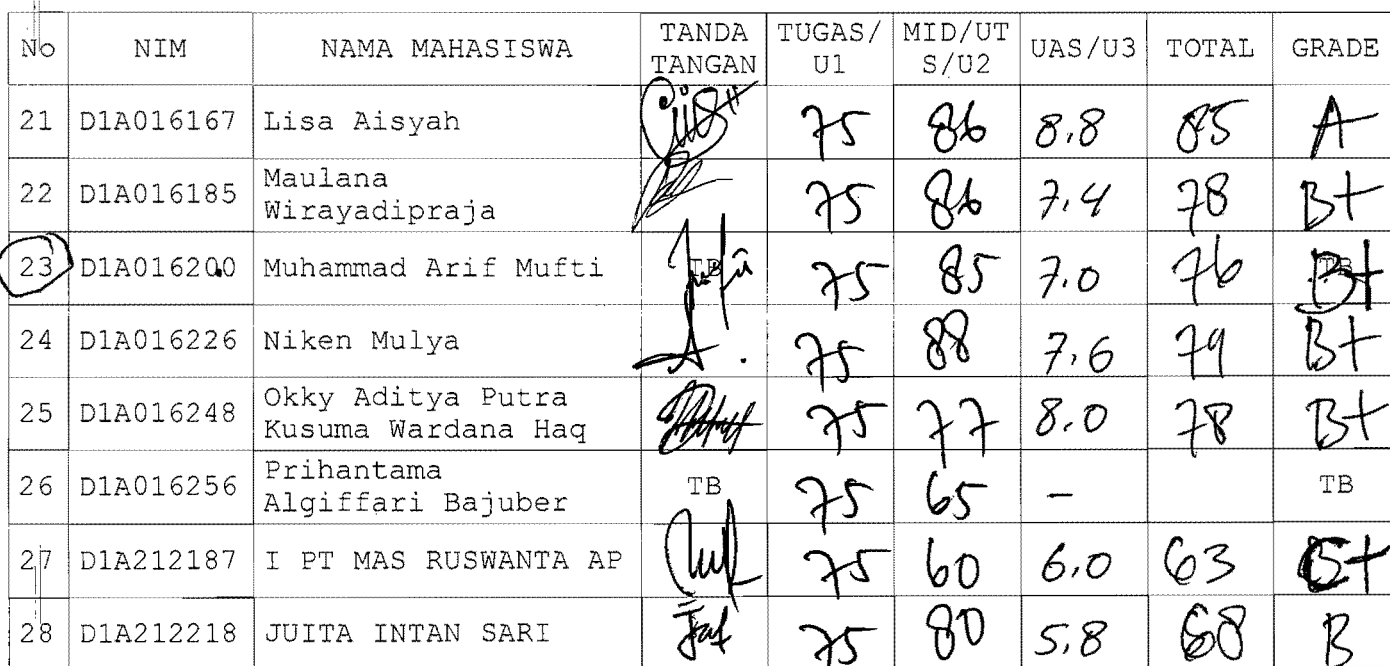 No NIM NAMA MAHASISWA TANDA TANGAN TUGAS/U1 MID/UTS/U2 UAS/U3 TOTAL GRADE
21 D1A016167 Lisa Aisyah 75 86 8.8 85 A
22 D1A016185 Maulana Wirayadipraja 75 86 7.4 78 B+
23 D1A016200 Muhammad Arif Mufti TB 75 85 7.0 76 B+
24 D1A016226 Niken Mulya 75 88 7.6 79 B+
25 D1A016248 Okky Aditya Putra Kusuma Wardana Haq 75 77 8.0 78 B+
26 D1A016256 Prihantama Algiffari Bajuber TB 75 65 - TB
27 D1A212187 I PT MAS RUSWANTA AP 75 60 6.0 63 C+
28 D1A212218 JUITA INTAN SARI 75 80 5.8 68 B